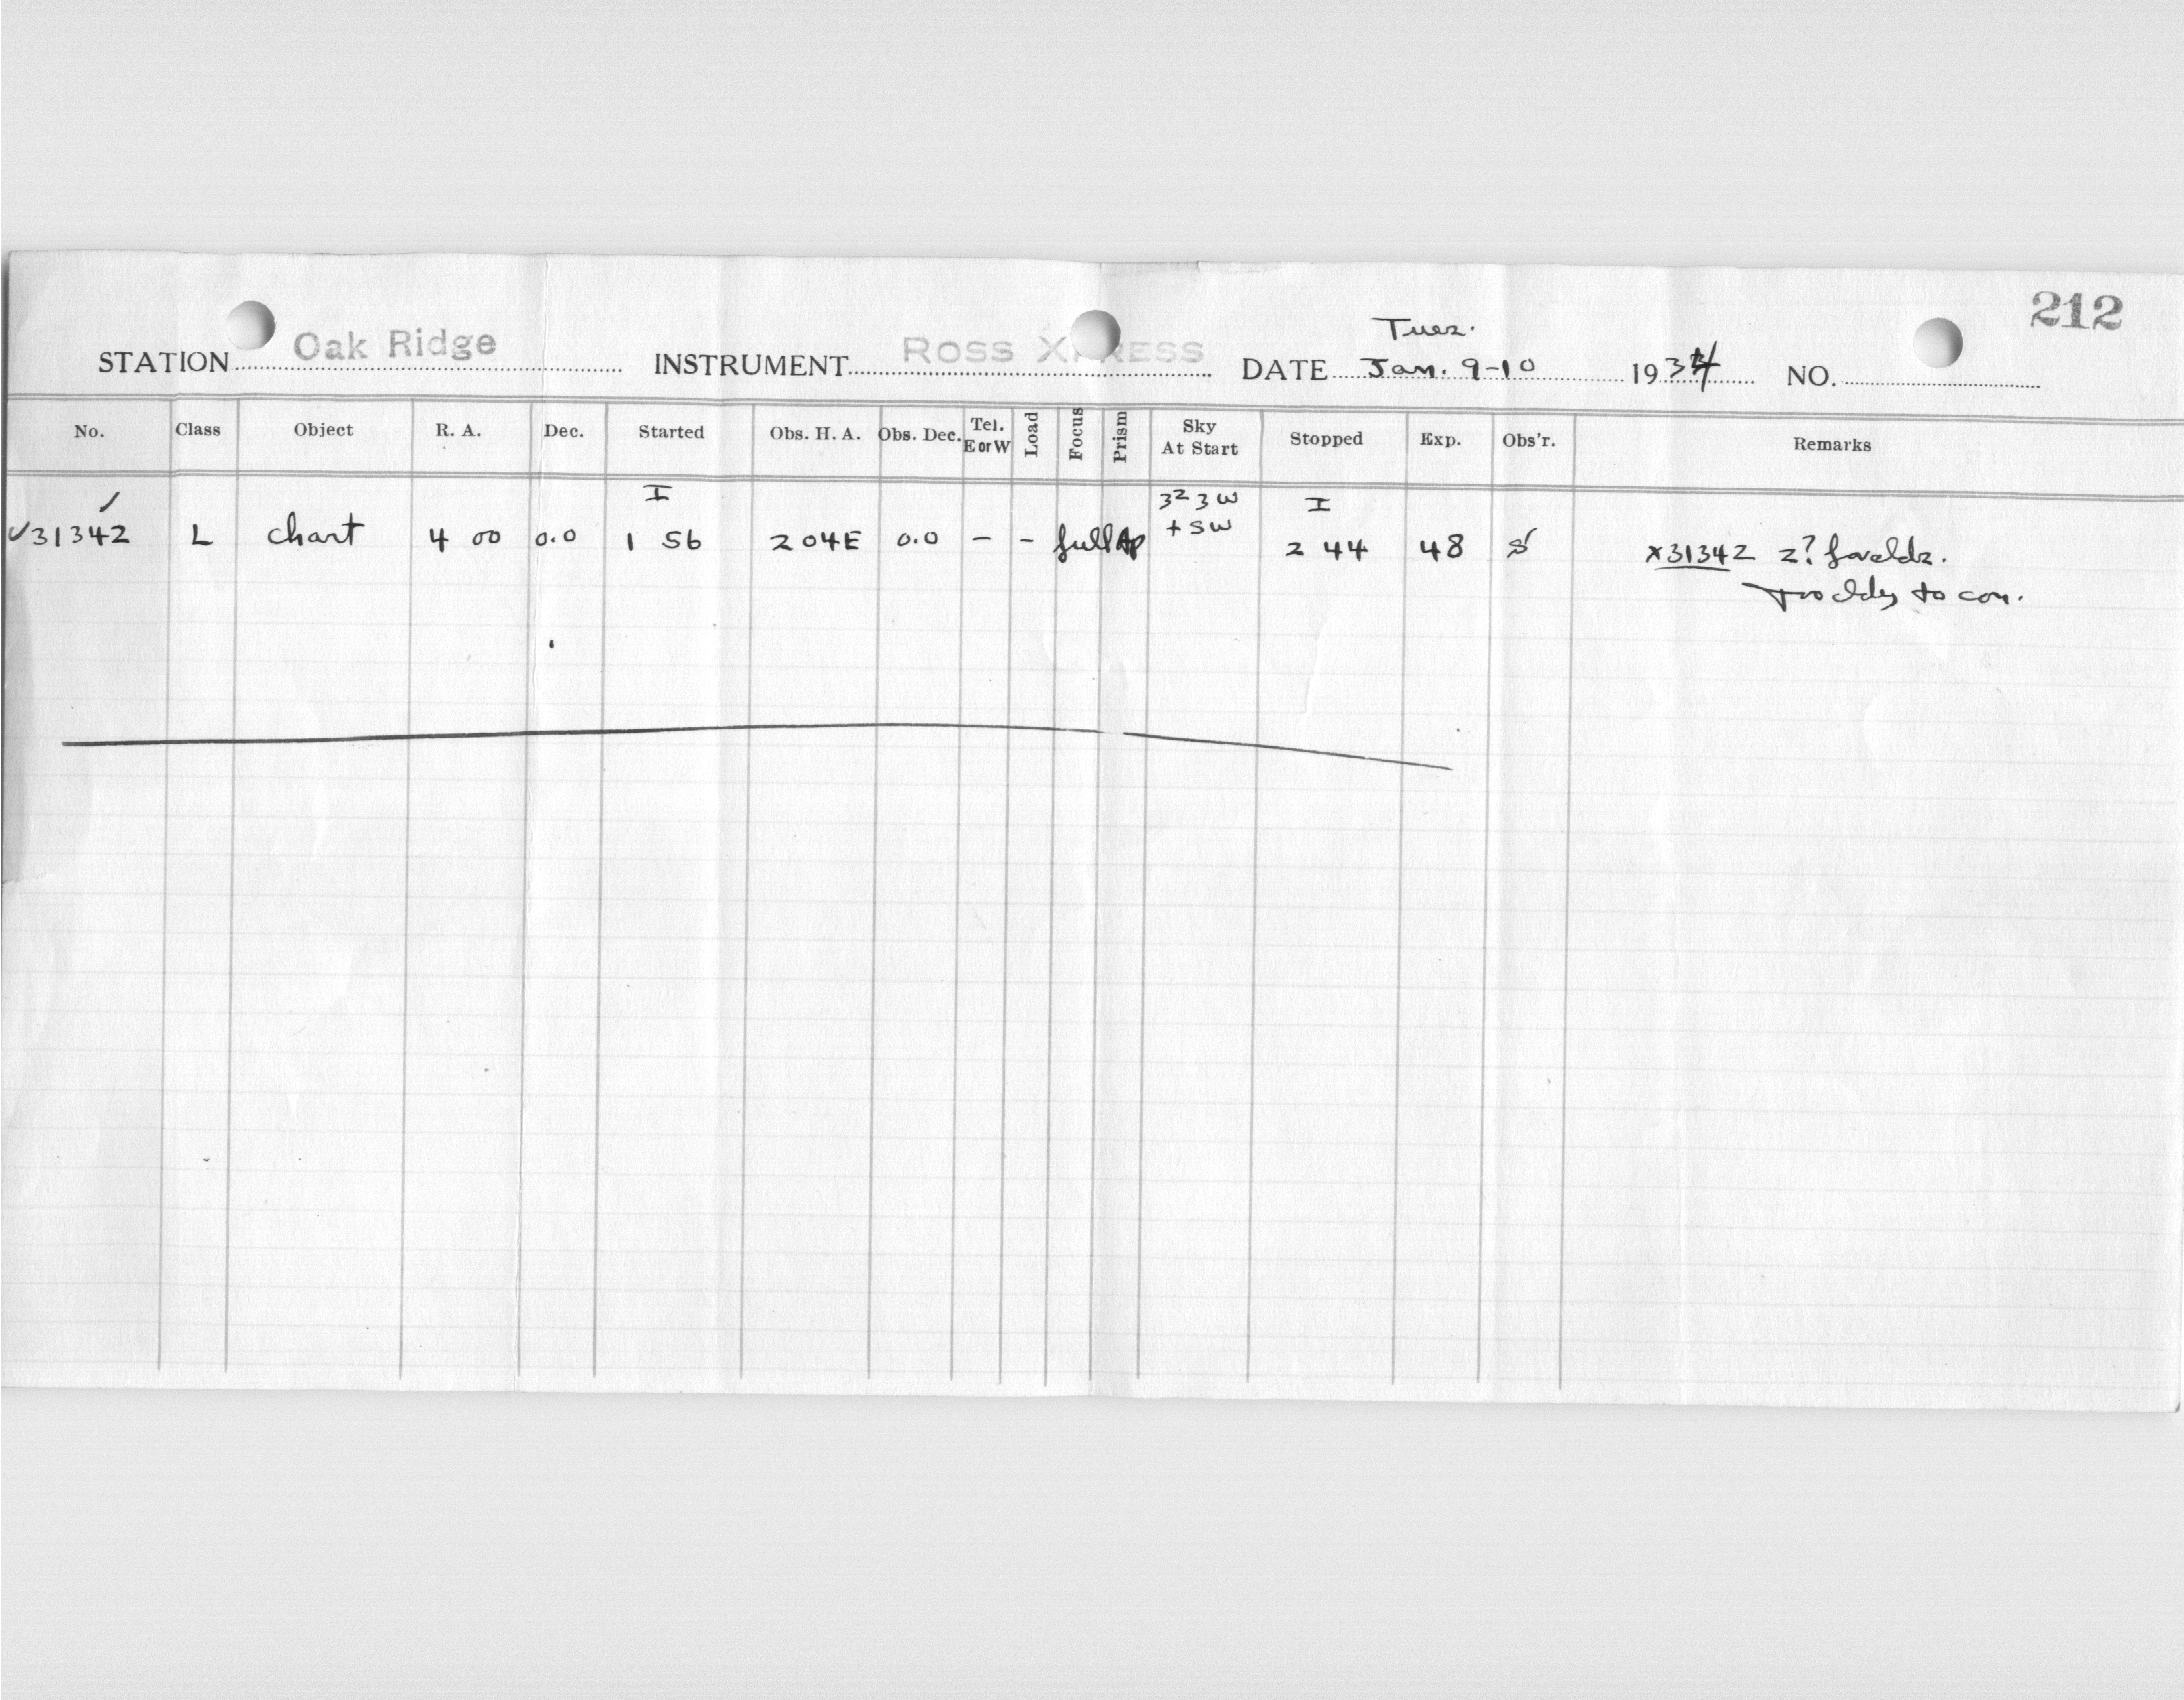 212
Tues.
STATION Oak Ridge INSTRUMENT ROSS XPRESS DATE Jan. 9-10 1934 NO.
No. Class Object R. A. Dec. Started Obs. H. A. Obs. Dec. Tel. E or W Load Focus Prism Sky At Start Stopped Exp. Obs'r. Remarks
I 3² 3 W I
✓31342 L chart 4 00 0.0 1 56 2 04E 0.0 - - full Ap + SW 2 44 48 S x31342 2?
to